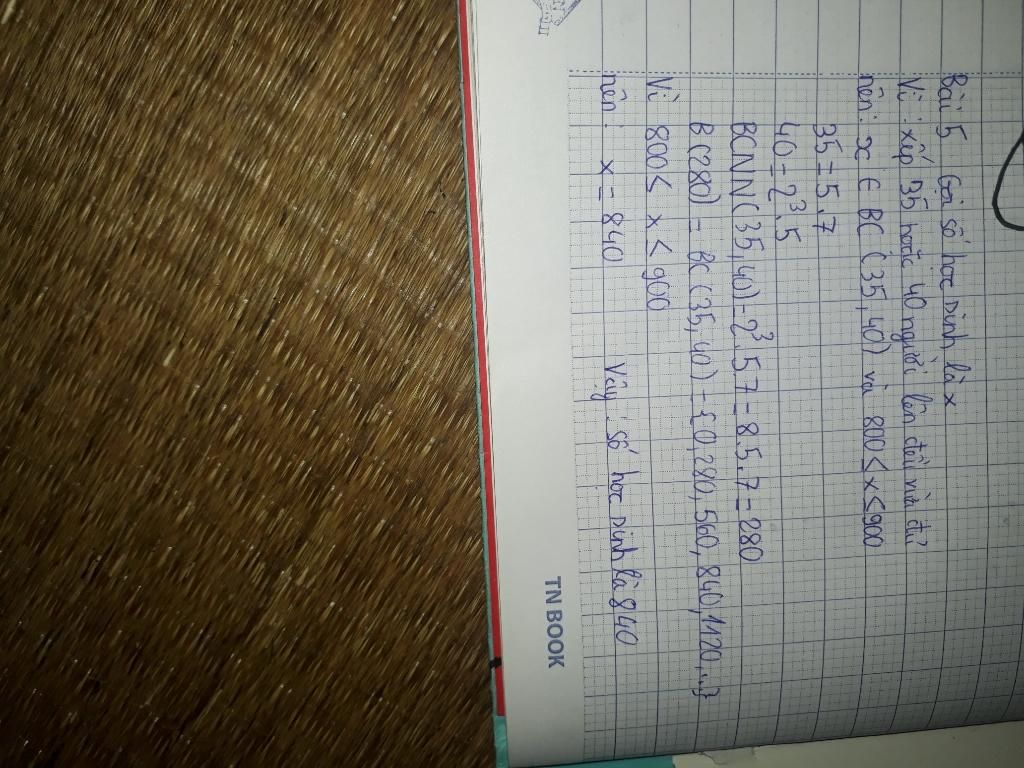 Bài 5 Gọi số học sinh là x
Vì: xếp 35 hoặc 40 người lên đều vừa đủ
nên: x ∈ BC (35,40) và 800 ≤ x ≤ 900
35 = 5.7
40 = 2³.5
BCNN(35,40) = 2³.5.7 = 8.5.7 = 280
B(280) = BC (35,40) = {0,280,560,840,1120,...}
Vì 800 ≤ x ≤ 900
nên: x = 840 Vậy số học sinh là 840
TN BOOK